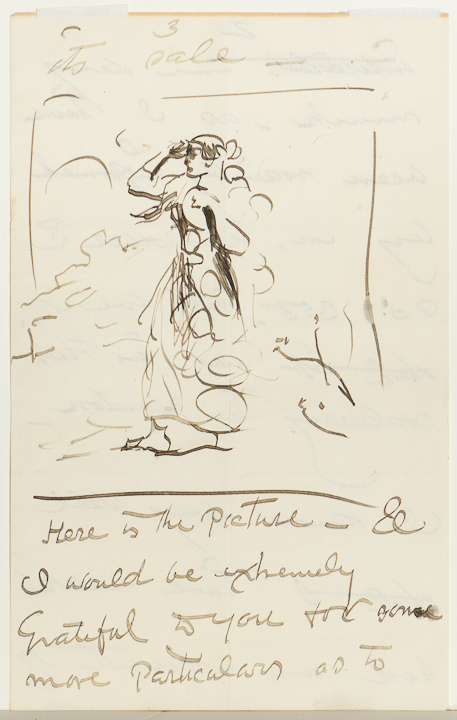 3
its sale —
Here is the Picture — &
I would be extremely
Grateful to you for some
more Particulars as to